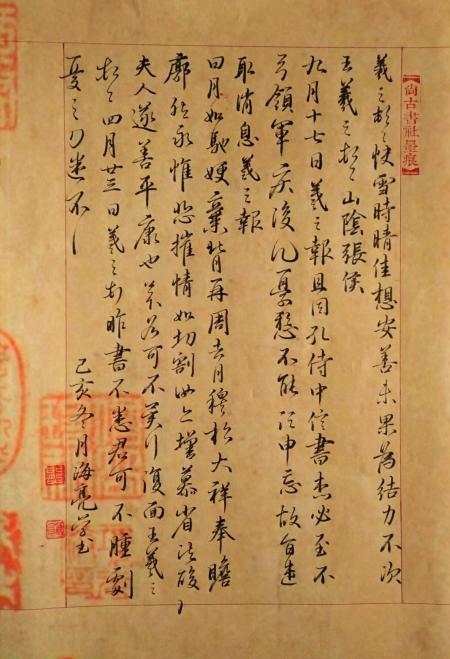 尚古書社墨痕
羲之頓首快雪時晴佳想安善未果為結力不次
王羲之頓首山陰張侯
九月十七日羲之報且因孔侍中信書想必至不
知領軍疾後問憂懸不能須臾忘故旨遣
取消息羲之報
日月如馳嫂棄背再周去月穆松大祥奉瞻
廓然永惟悲摧情如切割汝亦增慕省疏酸
夫人遂善平康也足下各可不冀行復面王羲之
頓首四月廿三日羲之頓首昨書不悉君可不腫劇
憂之力遣不
己亥冬月海亮學書